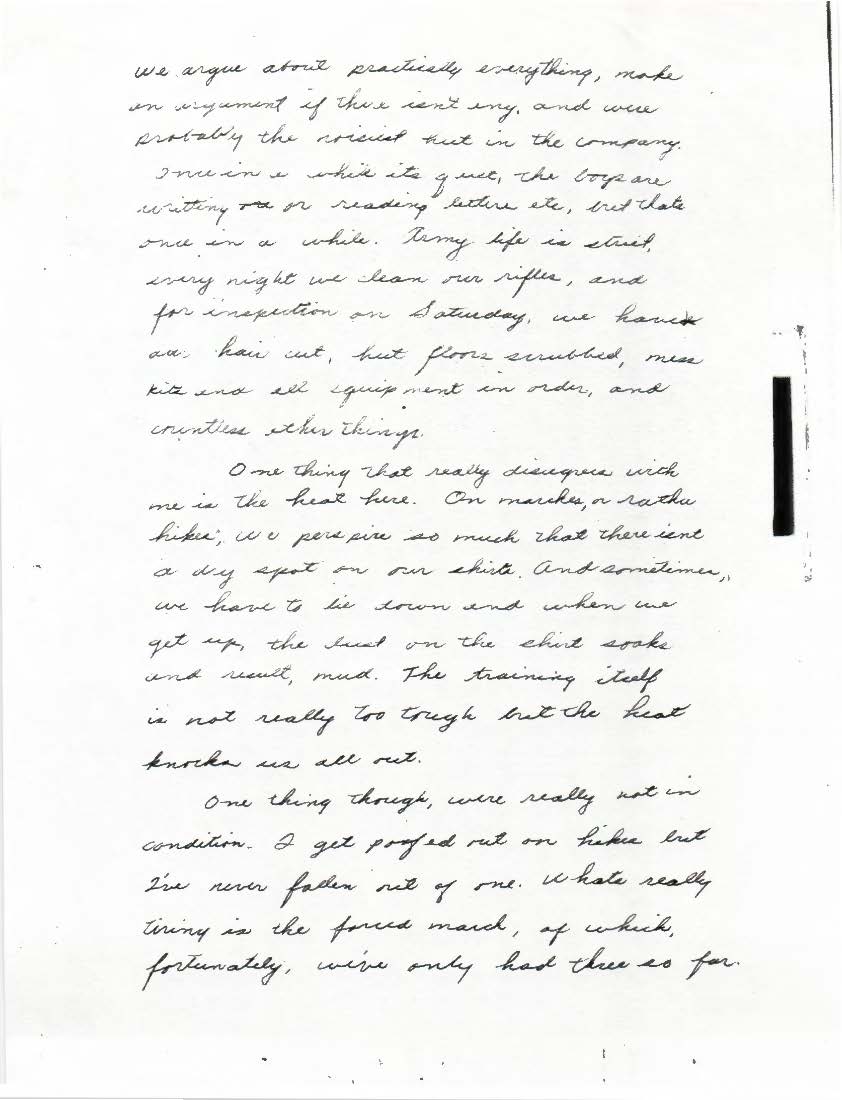 we argue about practically everything, make
an argument if there isn't any, and were
probably the noisiest hut in the company.
Once in a while its quiet, the boys are
writing or reading letters etc, but thats
once in a while. Army life is strict,
every night we clean our rifles, and
for inspection on Saturday, we have
a hair cut, hut floors scrubbed, mess
kits and all equipment in order, and
countless other things.
One thing that really disagrees with
me is the heat here. On marches, or rather
hikes, we perspire so much that there isnt
a dry spot on our shirts. And sometimes,
we have to lie down and when we
get up, the dust on the shirt soaks
and result, mud. The training itself
is not really too tough but the heat
knocks us all out.
One thing though, were really not in
condition. I get poofed out on hikes but
I've never fallen out of one. Whats really
tiring is the forced march, of which,
fortunately, we've only had three so far.